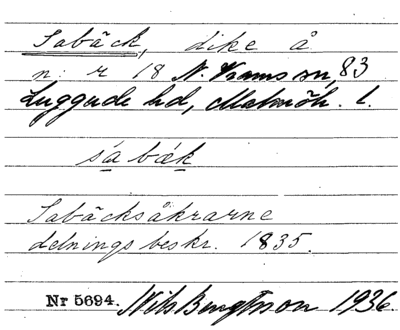 Sabäck, dike å
n: r 18 N. Vrams sn, 83
Luggude hd, Malmöh. l.
sa bæk
Sabäcksåkrarne
delnings beskr. 1835.
Nr 5694. Nils Bengtsson 1936.